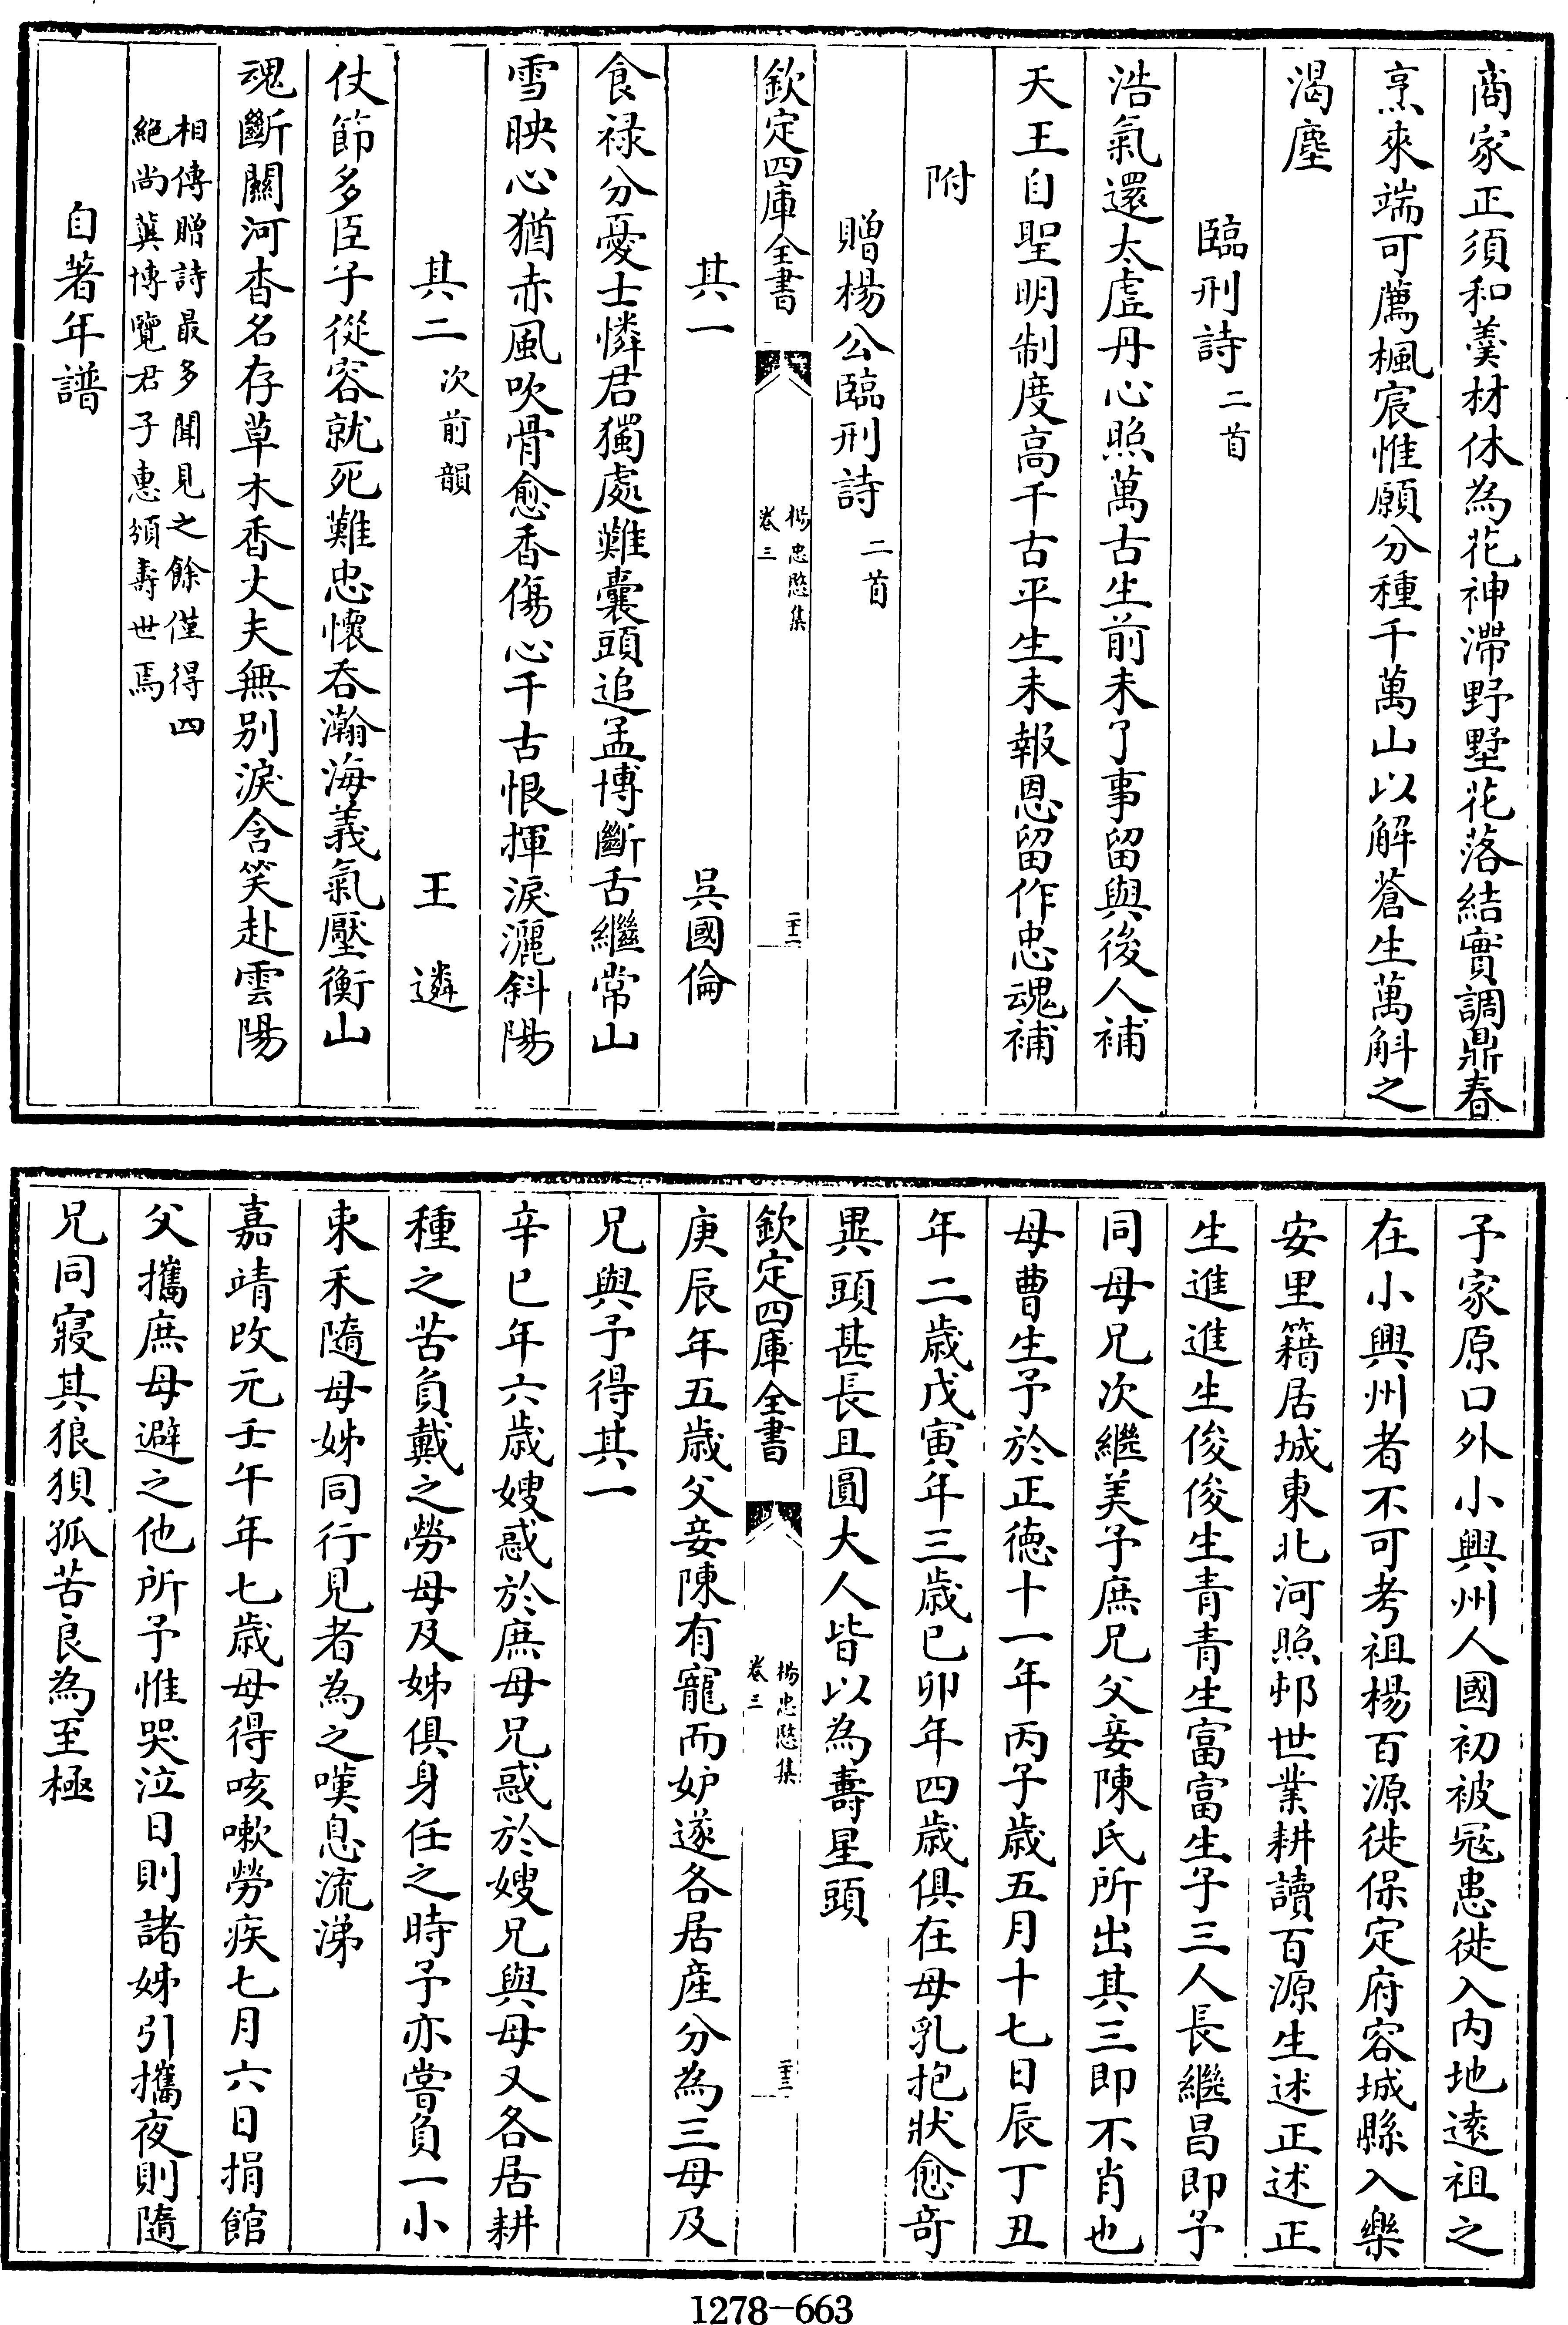 商家正須和羹材休為花神滯野墅花落結實調鼎春
烹來端可薦楓宸惟願分種千萬山以解蒼生萬斛之
渴塵
臨刑詩二首
浩氣還太虛丹心照萬古生前未了事留與後人補
天王自聖明制度高千古平生未報恩留作忠魂補
附
贈楊公臨刑詩二首
欽定四庫全書
楊忠愍集
卷三
二十二
其一 吳國倫
食祿分憂士憐君獨處難囊頭追孟博斷舌繼常山
雪映心猶赤風吹骨愈香傷心千古恨揮淚灑斜陽
其二次前韻 王遴
仗節多臣子從容就死難忠懷吞瀚海義氣壓衡山
魂斷關河杳名存草木香丈夫無别淚含笑赴雲陽
相傳贈詩最多聞見之餘僅得四
絕尚冀博覽君子惠頒壽世焉
自著年譜
予家原口外小興州人國初被冦患徙入内地逺祖之
在小興州者不可考祖楊百源徙保定府容城縣入樂
安里籍居城東北河照邨世業耕讀百源生述正述正
生進進生俊俊生青青生富富生子三人長繼昌即予
同母兄次繼美予庶兄父妾陳氏所出其三即不肖也
母曹生予於正德十一年丙子歳五月十七日辰丁丑
年二歳戊寅年三歳巳卯年四歳俱在母乳抱狀愈竒
異頭甚長且圓大人皆以為壽星頭
欽定四庫全書
楊忠愍集
卷三
二十三
庚辰年五歳父妾陳有寵而妒遂各居産分為三母及
兄與予得其一
辛巳年六歳嫂惑於庶母兄惑於嫂兄與母又各居耕
種之苦負戴之勞母及姊俱身任之時予亦嘗負一小
束禾隨母姊同行見者為之嘆息流涕
嘉靖改元壬午年七歳母得咳嗽勞疾七月六日捐館
父攜庶母避之他所予惟哭泣日則諸姊引攜夜則隨
兄同寢其狼狽孤苦良為至極
1278-663